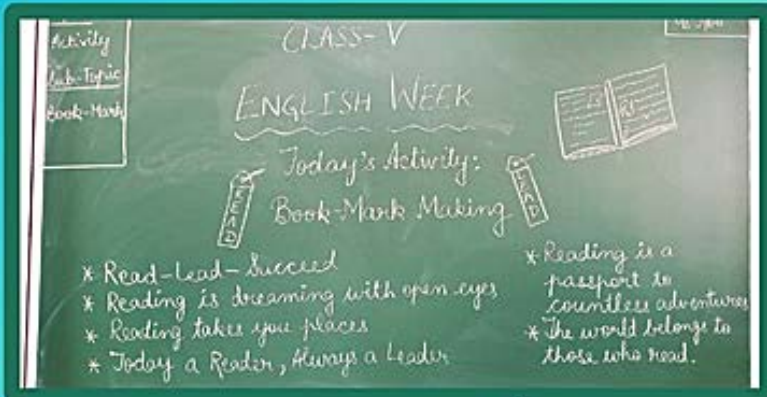 Activity
Sub-Topic
Book-Mark
CLASS-V
ENGLISH WEEK
Today's Activity:
Book-Mark Making
READ
LEAD
* Read-Lead-Succeed
* Reading is dreaming with open eyes
* Reading takes you places
* Today a Reader, Always a Leader
* Reading is a
passport to
countless adventures
* The world belongs to
those who read.